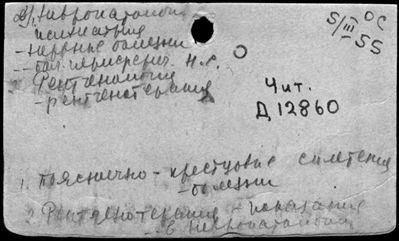 Невропатология
психиатрия
- нервные болезни
Н.С.
2. Рентгенология
- рентгенотерапия
ОС
5/III 55
Чит.
Д 12860
1. пояснично - крестцовые сплетения
- болезни
2. Рентгенотерапия - показания
- в невропатологии